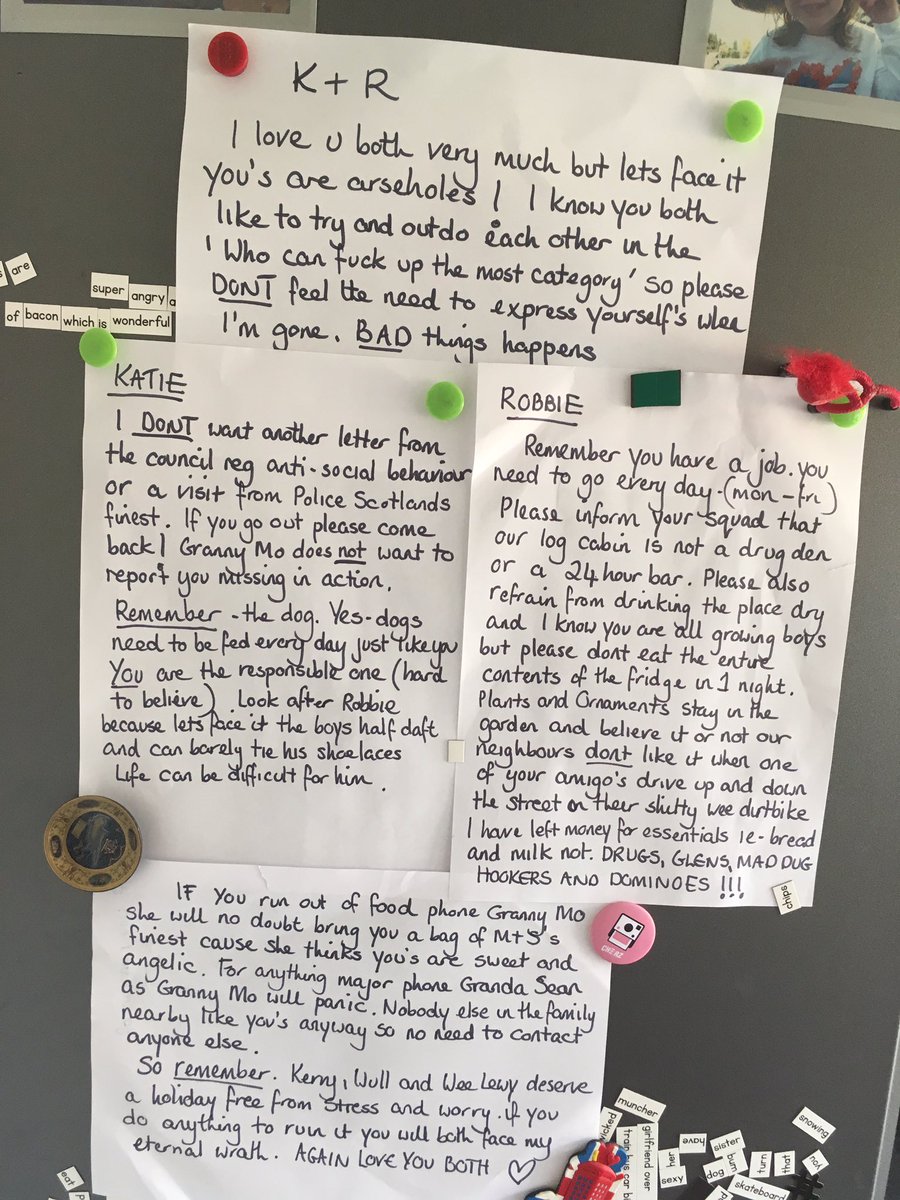 K + R
I love u both very much but lets face it
you's are arseholes! I know you both
like to try and outdo each other in the
'Who can fuck up the most category' so please
DONT feel the need to express yourself's whee
I'm gone. BAD things happens
s are
super angry a
of bacon which is wonderful
KATIE
I DONT want another letter from
the council reg anti-social behaviour
or a visit from Police Scotlands
finest. If you go out please come
back! Granny Mo does not want to
report you missing in action.
Remember - the dog. Yes-dogs
need to be fed every day just like you
You are the responsible one (hard
to believe). Look after Robbie
because lets face it the boys half daft
and can barely tie his shoelaces
Life can be difficult for him.
ROBBIE
Remember you have a job. you
need to go every day-(mon-fri)
Please inform your squad that
our log cabin is not a drug den
or a 24 hour bar. Please also
refrain from drinking the place dry
and I know you are all growing boys
but please dont eat the entire
contents of the fridge in 1 night.
Plants and Ornaments stay in the
garden and believe it or not our
neighbours dont like it when one
of your amigo's drive up and down
the street on their shitty wee dirtbike
I have left money for essentials ie-bread
and milk not. DRUGS, GLENS, MAD DUG
HOOKERS AND DOMINOES !!!
chips
IF you run out of food phone Granny Mo
she will no doubt bring you a bag of M+S's
finest cause she thinks you's are sweet and
angelic. For anything major phone Granda Sean
as Granny Mo will panic. Nobody else in the family
nearby like you's anyway so no need to contact
anyone else.
So remember. Kerry, Wull and Wee Lewy deserve
a holiday free from stress and worry. if you
do anything to ruin it you will both face my
eternal wrath. AGAIN LOVE YOU BOTH
CHEERZ
muncher
snowing
girlfriend over
train bus car
have
sister
her
sexy
dog
bum
turn
that
skateboard
eat